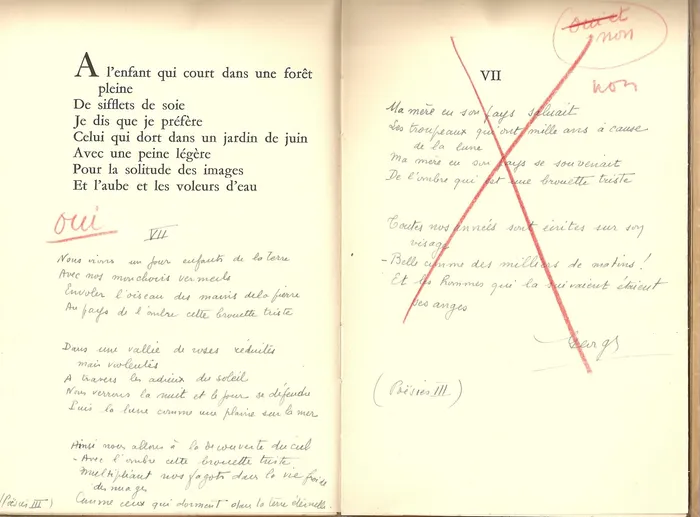 A l'enfant qui court dans une forêt
pleine
De sifflets de soie
Je dis que je préfère
Celui qui dort dans un jardin de juin
Avec une peine légère
Pour la solitude des images
Et l'aube et les voleurs d'eau
oui
VII
Nous vivons un jour enfants de la terre
Avec nos mouchoirs vermeils
Envoler l'oiseau des mains de la pierre
Au pays de l'ombre cette brouette triste
Dans une vallée de roses réduites
mais violentes
A travers les adieux du soleil
Nous verrons la nuit et le jour se défendre
Puis la lune comme une plaine sur la mer
Ainsi nous allons à la découverte du ciel
- Avec l'ombre cette brouette triste
Multipliant nos fagots dans la vie froide
des nuages
(Poësies III) Comme ceux qui dorment dans la terre éternelle
oui et
non
VII
non
Ma mère en son pays saluait
Les troupeaux qui ont mille ans à cause
de la lune
Ma mère en son pays se souvenait
De l'ombre qui est une brouette triste
Toutes nos années sont écrites sur son
visage
- Belle comme des milliers de matins !
Et les hommes qui la suivaient étaient
des anges
(Poësies III)